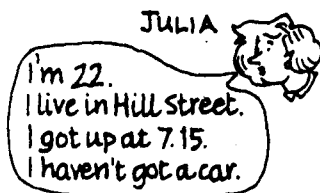 JULIA
I'm 22.
I live in Hill Street.
I got up at 7.15.
I haven't got a car.